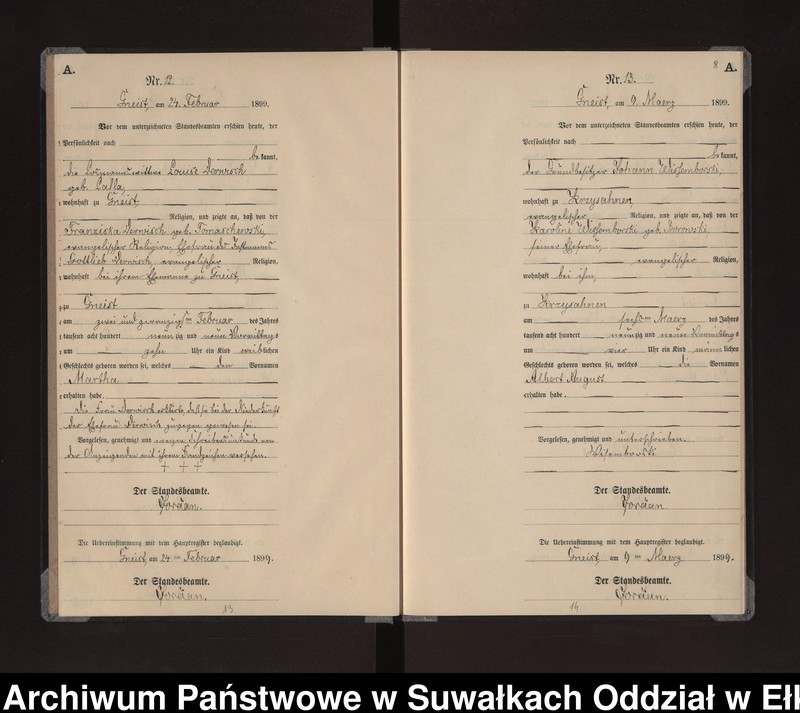 A.
Nr. 12.
Gneist, am 24. Februar 1899.
Vor dem unterzeichneten Standesbeamten erschien heute, der
Persönlichkeit nach
bekannt,
die Losmannswittwe Louise Derwisch
geb.
wohnhaft zu Gneist,
Religion, und zeigte an, daß von der
Franziska Derwisch geb. Tomaschewski,
evangelischer Religion, Ehefrau des Instmanns
Gottlieb Derwisch, evangelischer Religion,
wohnhaft bei ihrem Ehemanne zu Gneist,
zu Gneist
am zwei und zwanzigsten Februar des Jahres
tausend acht hundert neunzig und neun Vormittags
um zehn Uhr ein Kind weiblichen
Geschlechts geboren worden sei, welches den Vornamen
Martha
erhalten habe.
Die Frau Derwisch erklärte, daß sie bei der Niederkunft
der Ehefrau Derwisch zugegen gewesen sei.
Vorgelesen, genehmigt und wegen Schreibensunkunde von
der Anzeigenden mit ihrem Handzeichen versehen.
+ + +
Der Standesbeamte.
Die Uebereinstimmung mit dem Hauptregister beglaubigt.
Gneist, am 24ten Februar 1899.
Der Standesbeamte.
13
8 A.
Nr. 13.
Gneist, am 9. Maerz 1899.
Vor dem unterzeichneten Standesbeamten erschien heute, der
Persönlichkeit nach
bekannt,
der Grundbesitzer Johann
wohnhaft zu Krzysahnen,
evangelischer Religion, und zeigte an, daß von der
Karoline geb.
seiner Ehefrau,
evangelischer Religion,
wohnhaft bei ihm,
zu Krzysahnen
am sechsten Maerz des Jahres
tausend acht hundert neunzig und neun Vormittags
um vier Uhr ein Kind männlichen
Geschlechts geboren worden sei, welches die Vornamen
Albert August
erhalten habe.
Vorgelesen, genehmigt und unterschrieben.
Der Standesbeamte.
Die Uebereinstimmung mit dem Hauptregister beglaubigt.
Gneist, am 9ten Maerz 1899.
Der Standesbeamte.
14
Archiwum Państwowe w Suwałkach Oddział w Ełk